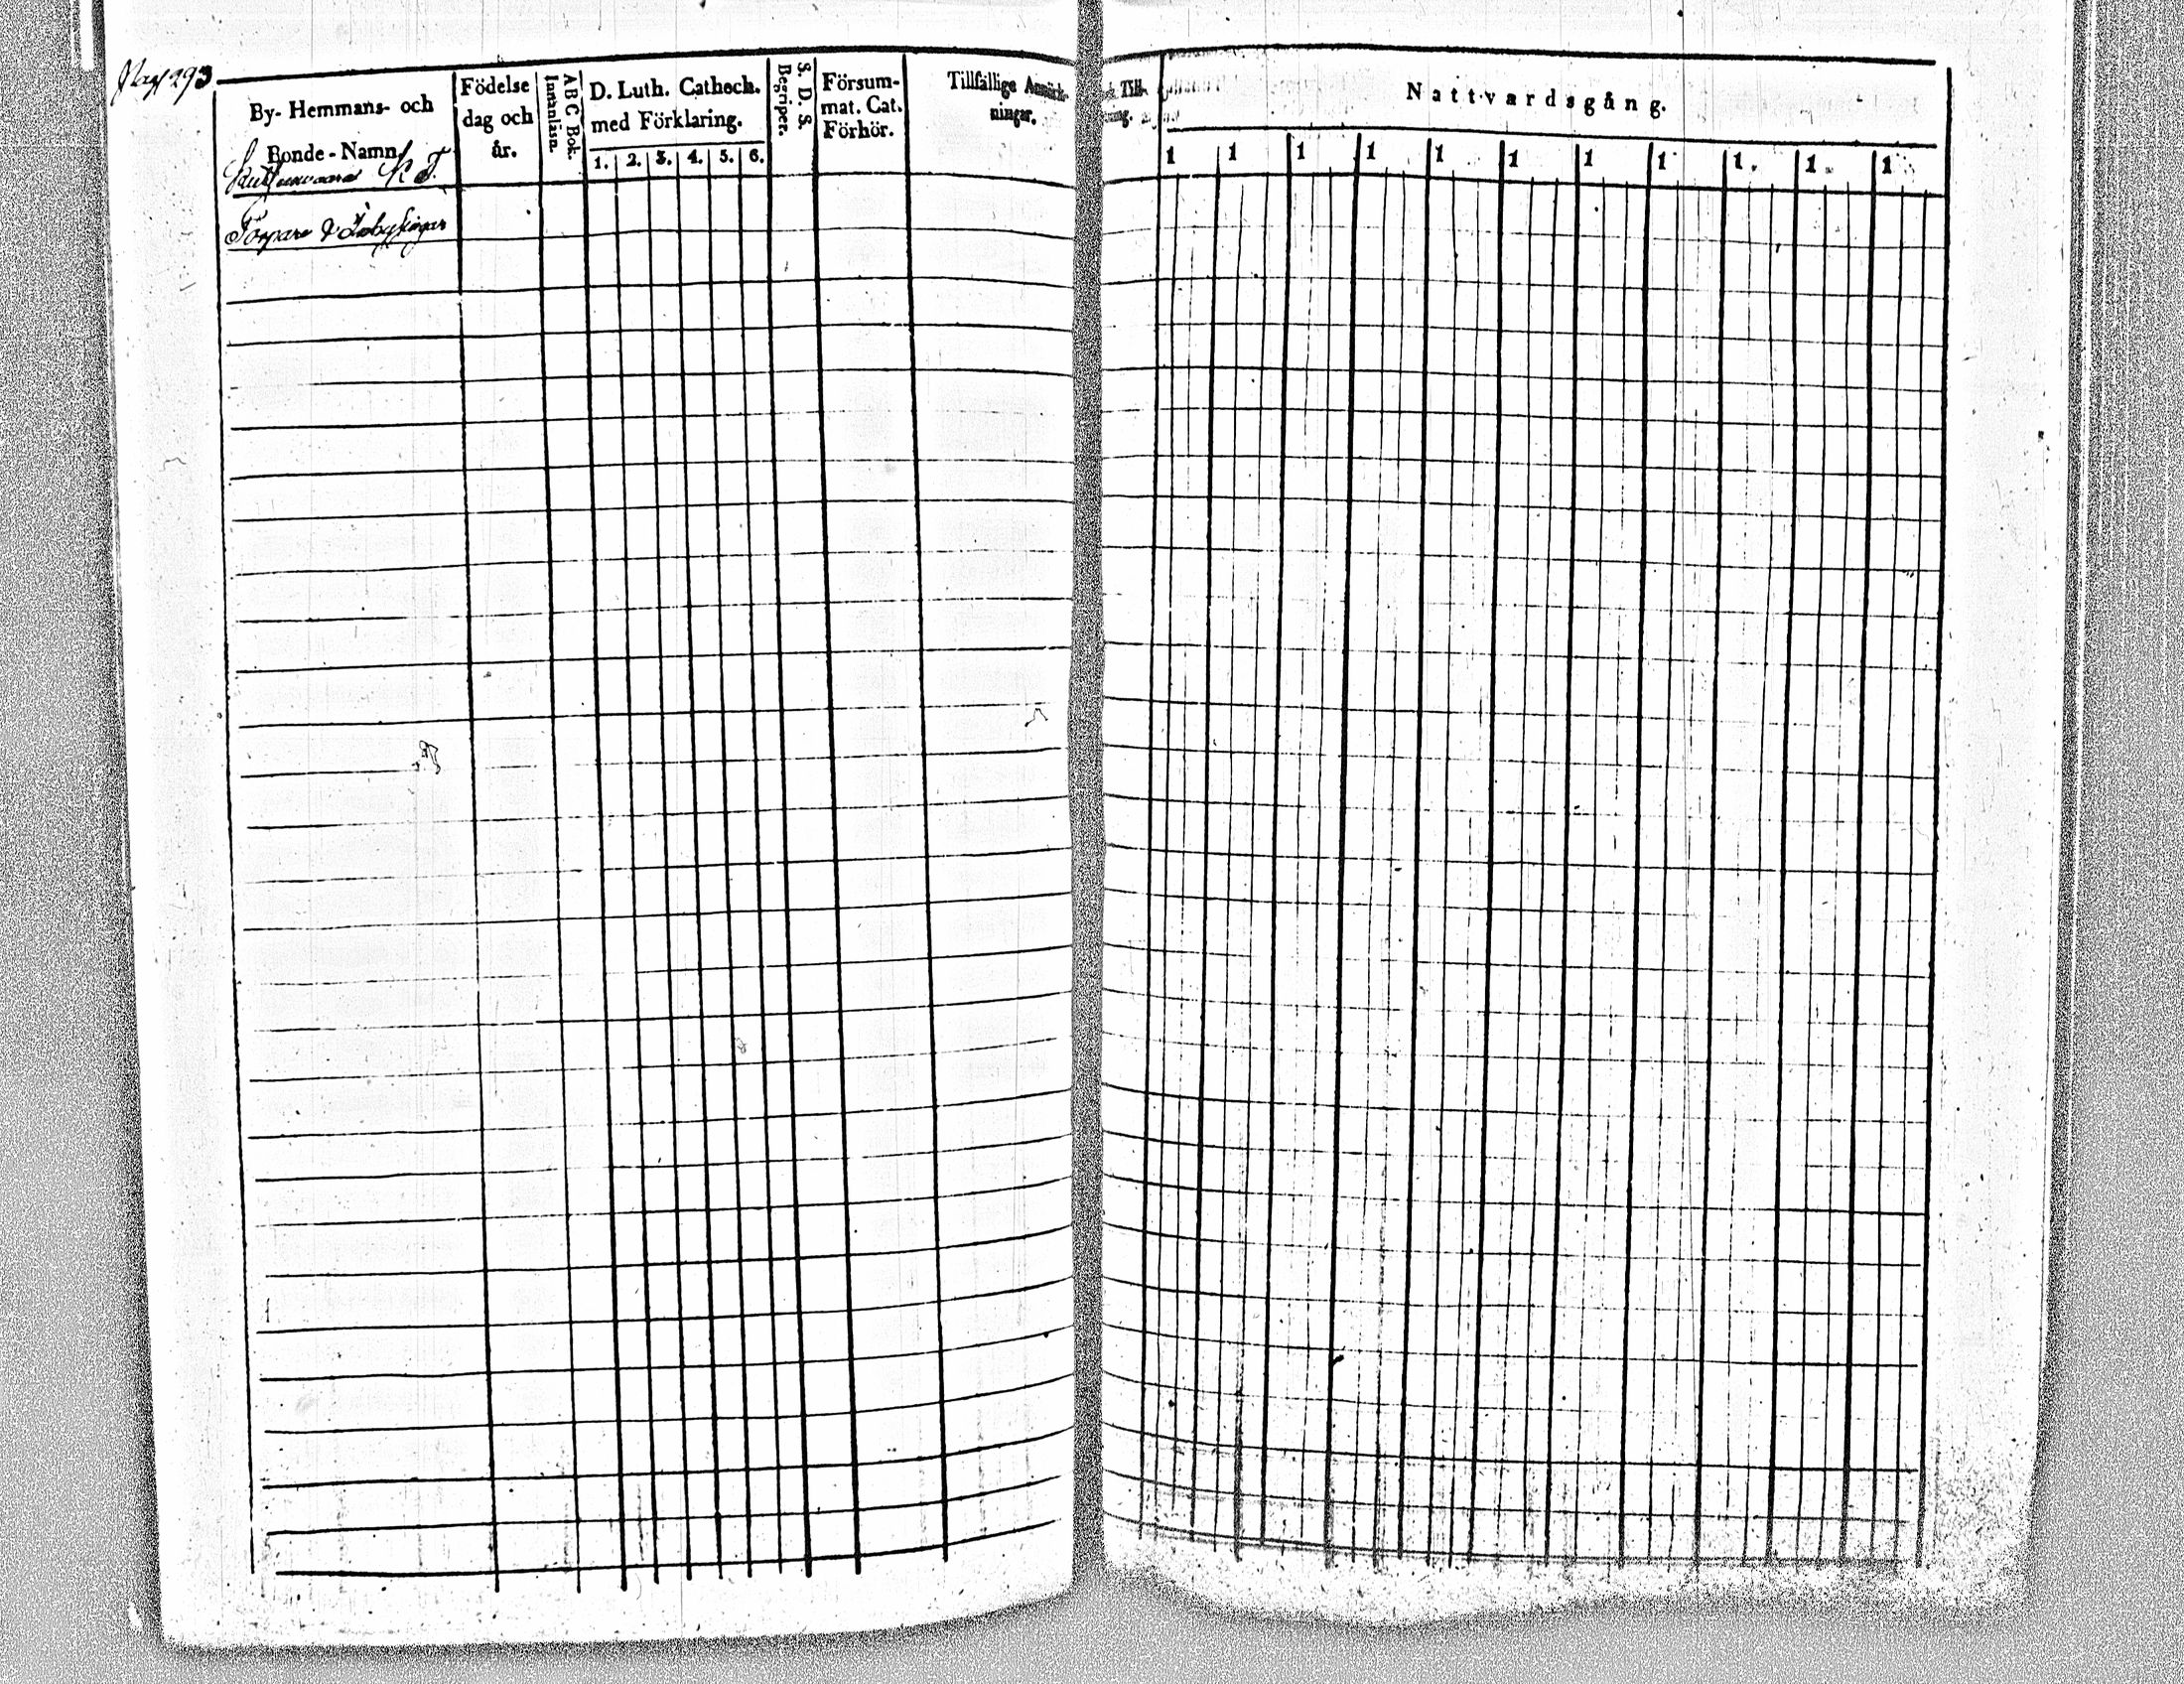 Pag 293
By- Hemmans- och
Bonde-Namn.
Födelse
dag och
år.
ABC Bok.
Innanläsn.
D. Luth. Cathech.
med Förklaring.
1. 2. 3. 4. 5. 6.
S. D. S.
Begriper.
Försum-
mat. Cat.
Förhör.
Tillfällige Anmärk-
ningar.
N:o
Torpare & Inhysingar
Nattvardsgång.
1 1 1 1 1 1 1 1 1. 1. 1